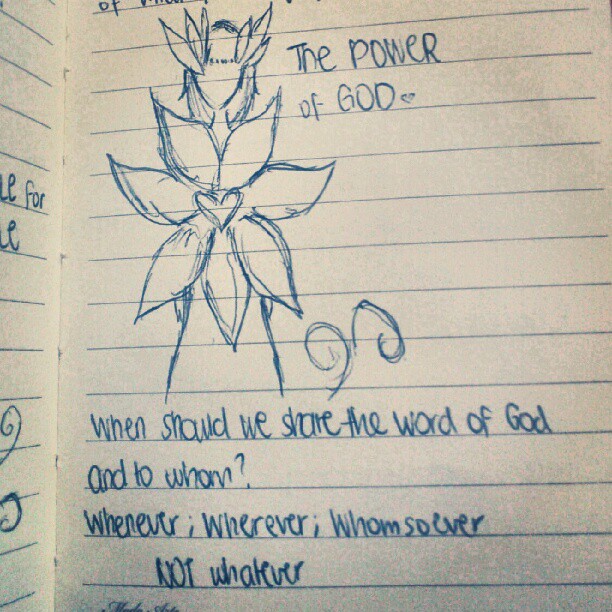 of
The POWER
of GOD
le for
le
When should we share the word of God
and to whom?
Whenever ; Wherever ; Whomsoever
NOT whatever